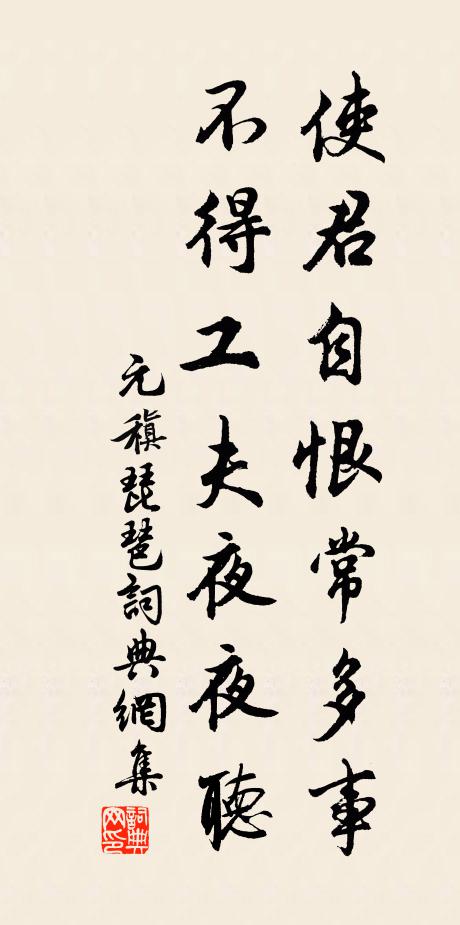 使君自恨常多事
不得工夫夜夜聽
元稹琵琶詞典網集
詞典網印